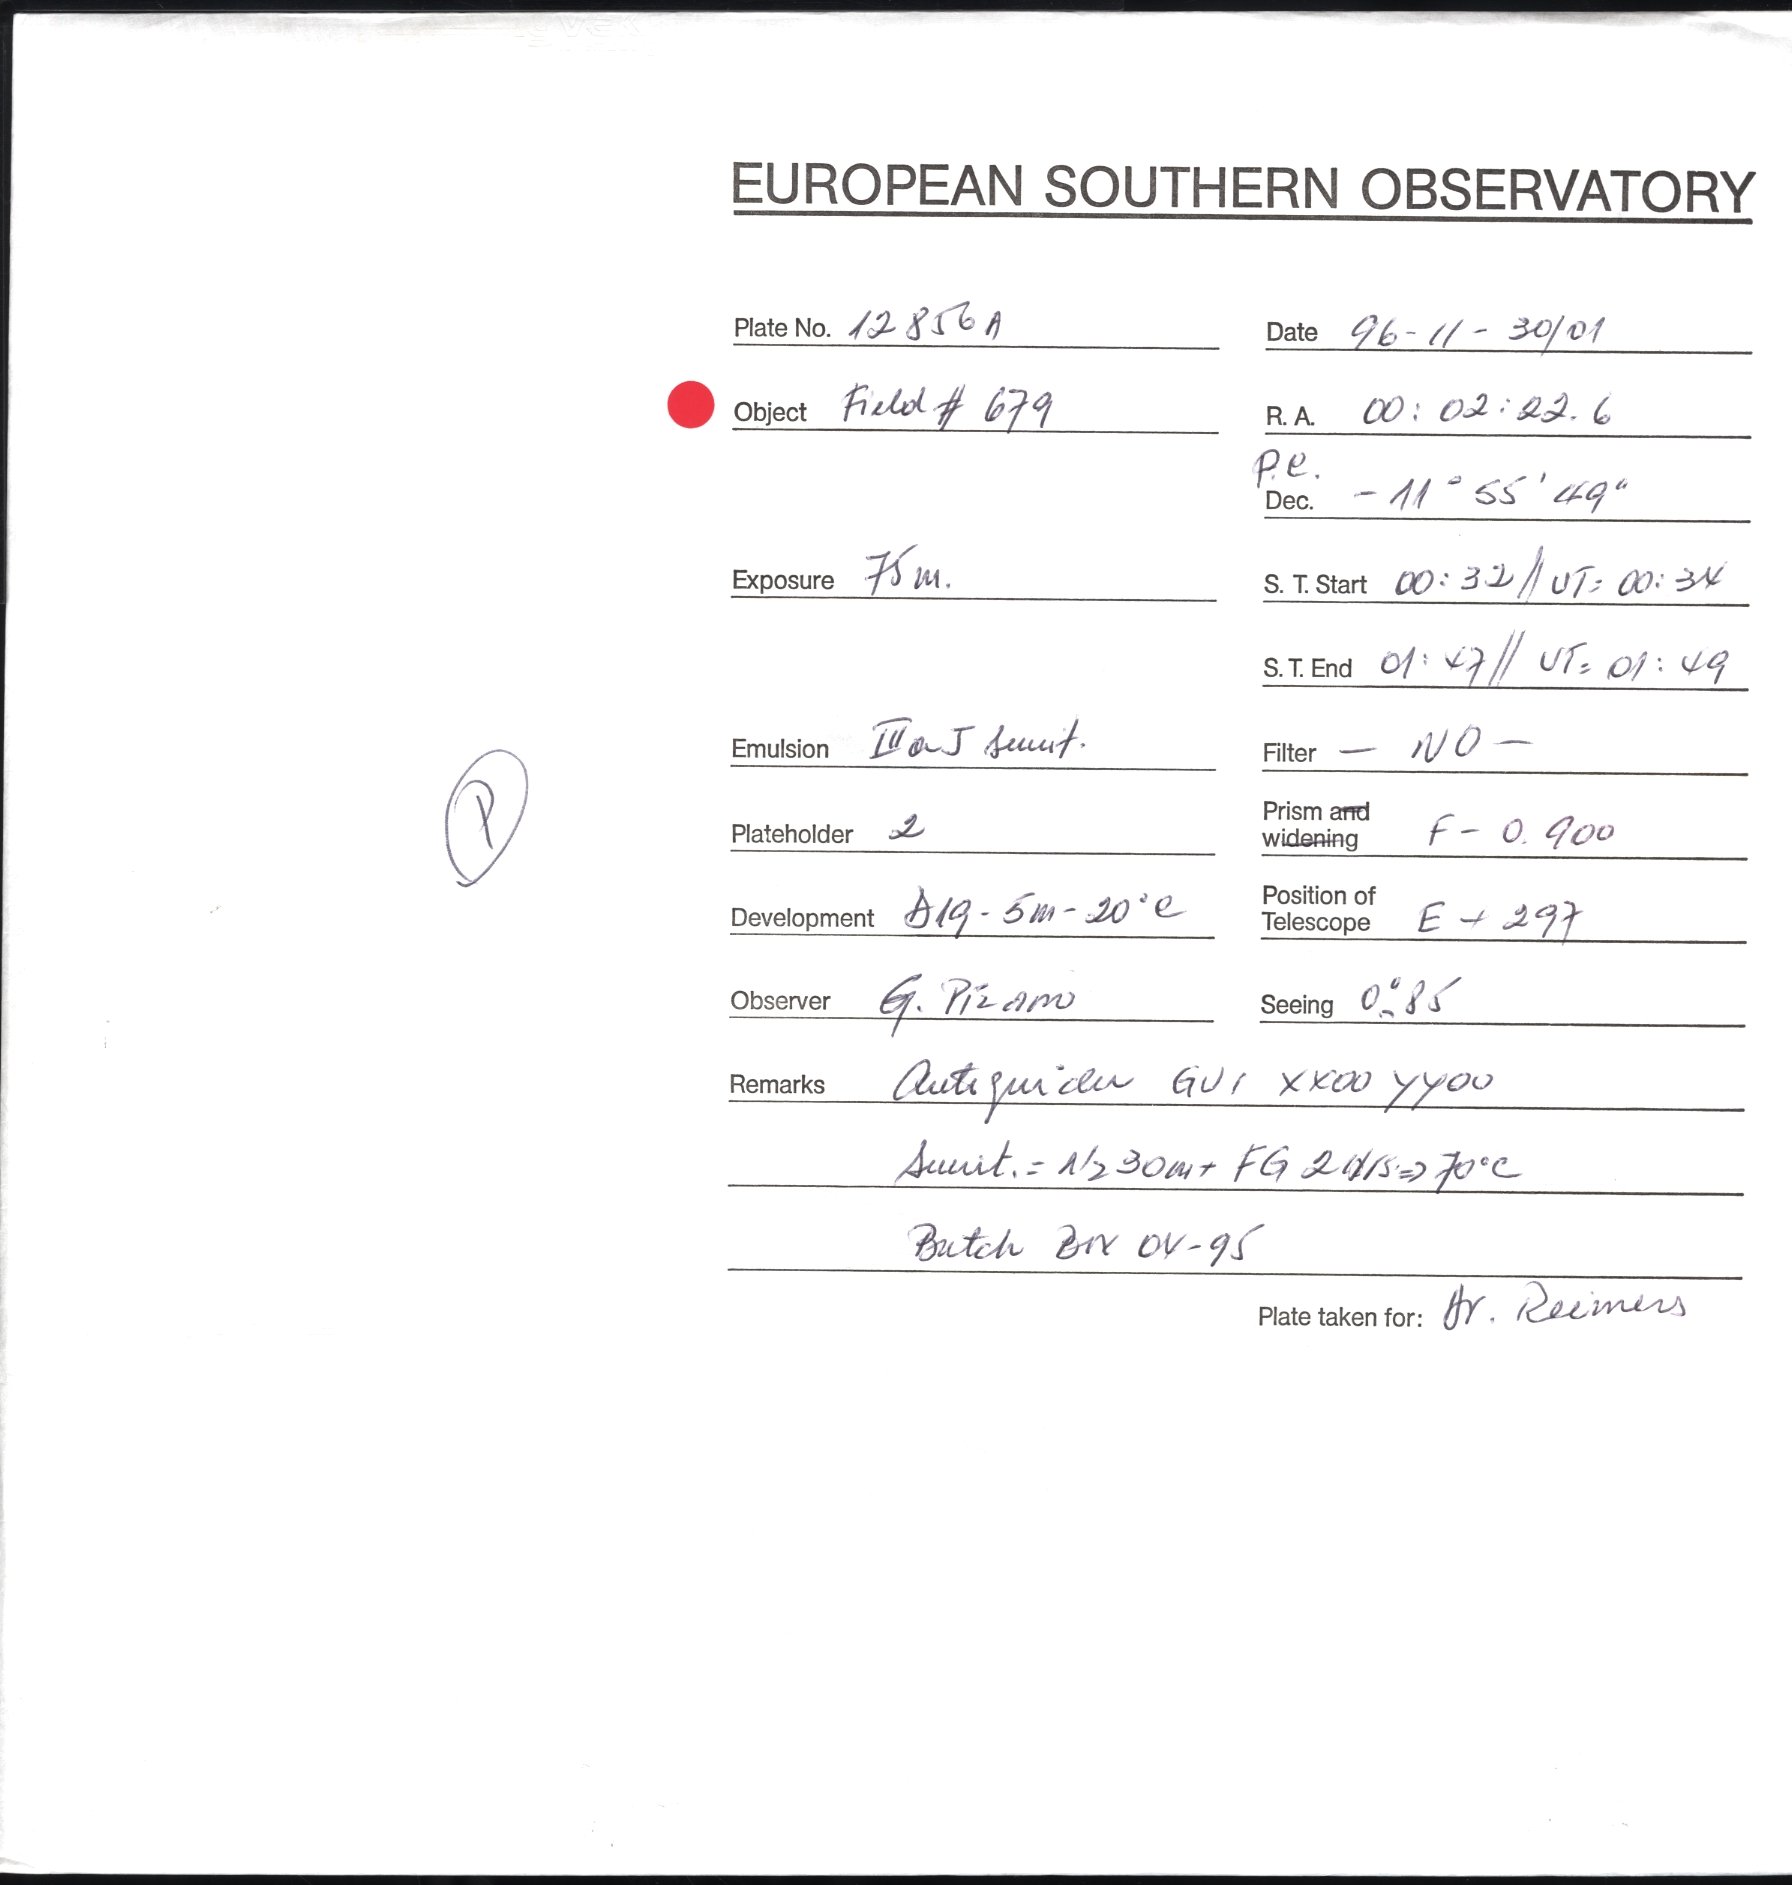 EUROPEAN SOUTHERN OBSERVATORY
Plate No. 12856A Date 96-11-30/01
Object Field # 679 R. A. 00:02:22.6
P.e.
Dec. -11° 55' 49"
Exposure 75m. S. T. Start 00:32 // UT= 00:34
S. T. End 01:47 // UT= 01:49
Emulsion IIIaJ Filter — NO —
P
Plateholder 2 Prism and widening F - 0.900
Development D19 - 5m - 20°C Position of Telescope E + 297
Observer G. Pizarro Seeing 0"85
Remarks GV1 XX00 YY00
30m + FG 70°C
Batch 04-95
Plate taken for: Dr. Reimers